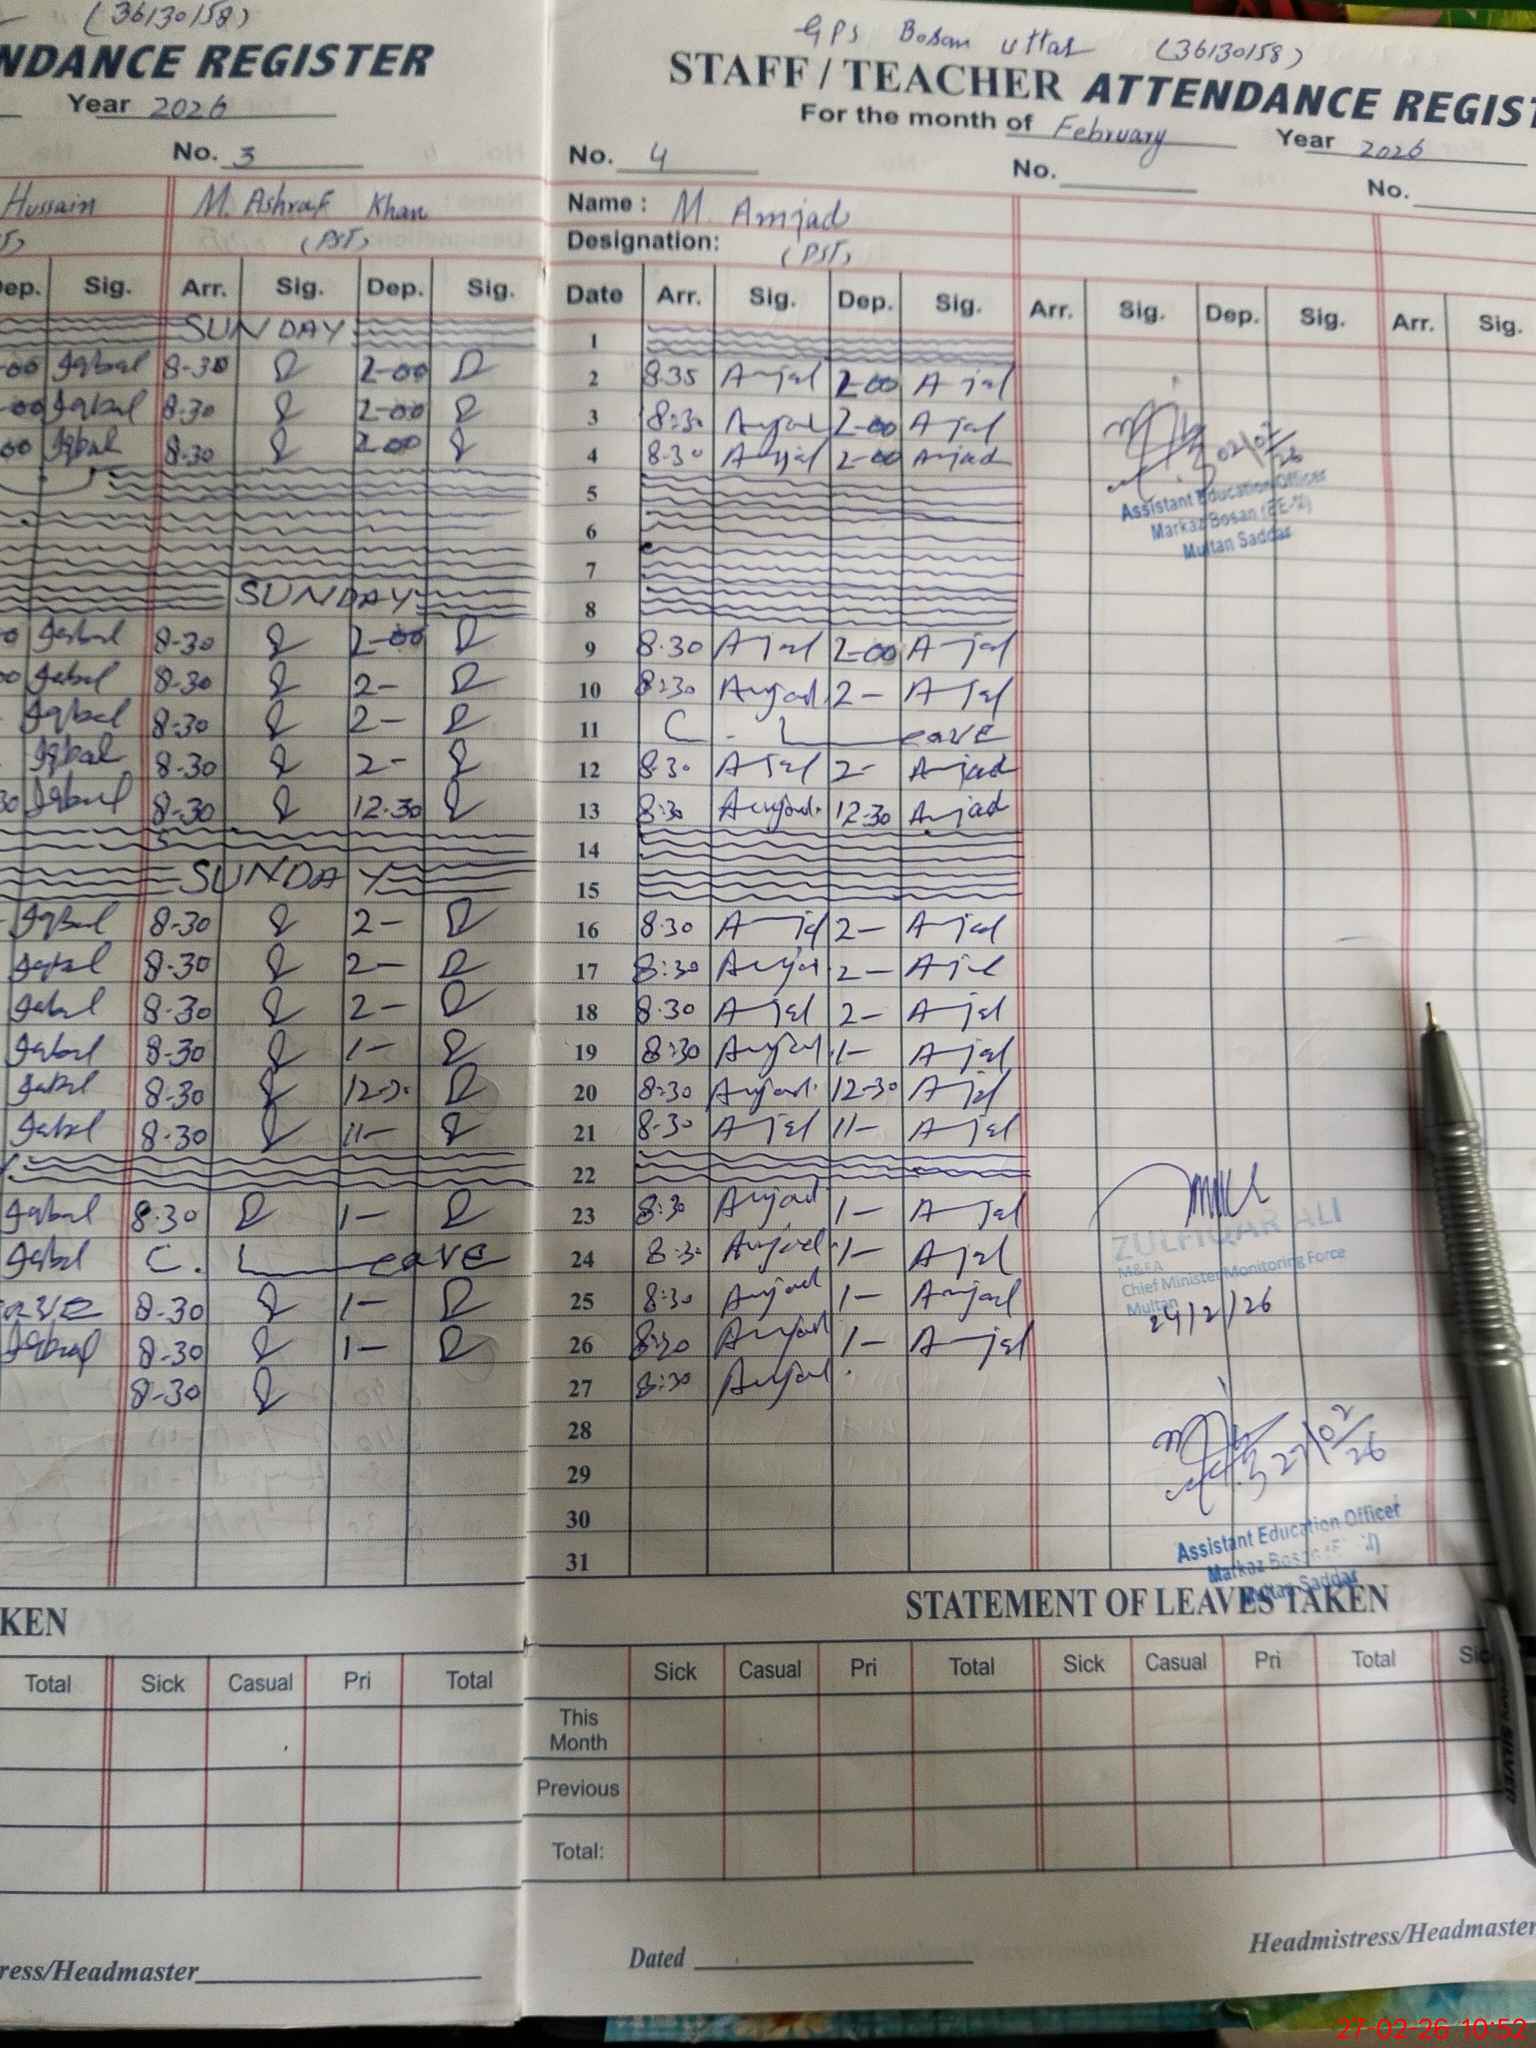 (36130158)
NDANCE REGISTER
Year 2026
No. 3
Hussain M. Ashraf Khan
(PST)
Dep. Sig. Arr. Sig. Dep. Sig.
SUNDAY
00 Iqbal 8-30 2-00
00 Iqbal 8-30 2-00
00 Iqbal 8-30 2-00
SUNDAY
Iqbal 8-30 2-00
Iqbal 8-30 2-
Iqbal 8-30 2-
Iqbal 8-30 2-
30 Iqbal 8-30 12-30
SUNDAY
Iqbal 8-30 2-
Iqbal 8-30 2-
Iqbal 8-30 2-
Iqbal 8-30 1-
Iqbal 8-30 12-30
Iqbal 8-30 11-
Iqbal 8-30 1-
Iqbal C. Leave
8-30 1-
Iqbal 8-30 1-
8-30
KEN
Total Sick Casual Pri Total
ress/Headmaster
GPS Bosan Uttar (36130158)
STAFF / TEACHER ATTENDANCE REGIST
For the month of February Year 2026
No. 4 No. No.
Name : M. Amjad
Designation: (PST)
Date Arr. Sig. Dep. Sig. Arr. Sig. Dep. Sig. Arr. Sig.
1
2 8.35 Amjad 2-00 Amjad
3 8:30 Amjad 2-00 Amjad
4 8.30 Amjad 2-00 Amjad
02/02/26
Assistant Education Officer
Markaz Bosan (EE-M)
Multan Saddar
5
6
7
8
9 8.30 Amjad 2-00 Amjad
10 8:30 Amjad 2- Amjad
11 C. Leave
12 8.30 Amjad 2- Amjad
13 8:30 Amjad 12-30 Amjad
14
15
16 8.30 Amjad 2- Amjad
17 8:30 Amjad 2- Amjad
18 8.30 Amjad 2- Amjad
19 8:30 Amjad 1- Amjad
20 8:30 Amjad 12-30 Amjad
21 8-30 Amjad 11- Amjad
22
23 8:30 Amjad 1- Amjad
24 8:30 Amjad 1- Amjad
25 8:30 Amjad 1- Amjad
26 8:30 Amjad 1- Amjad
27 8:30 Amjad
28
29
30
31
ZULFIQAR ALI
M&EA
Chief Minister Monitoring Force
Multan
24/2/26
27/02/26
Assistant Education Officer
Markaz Bosan
Multan Saddar
STATEMENT OF LEAVES TAKEN
Sick Casual Pri Total Sick Casual Pri Total
This Month
Previous
Total:
Dated
Headmistress/Headmaster
27-02-26 10:52